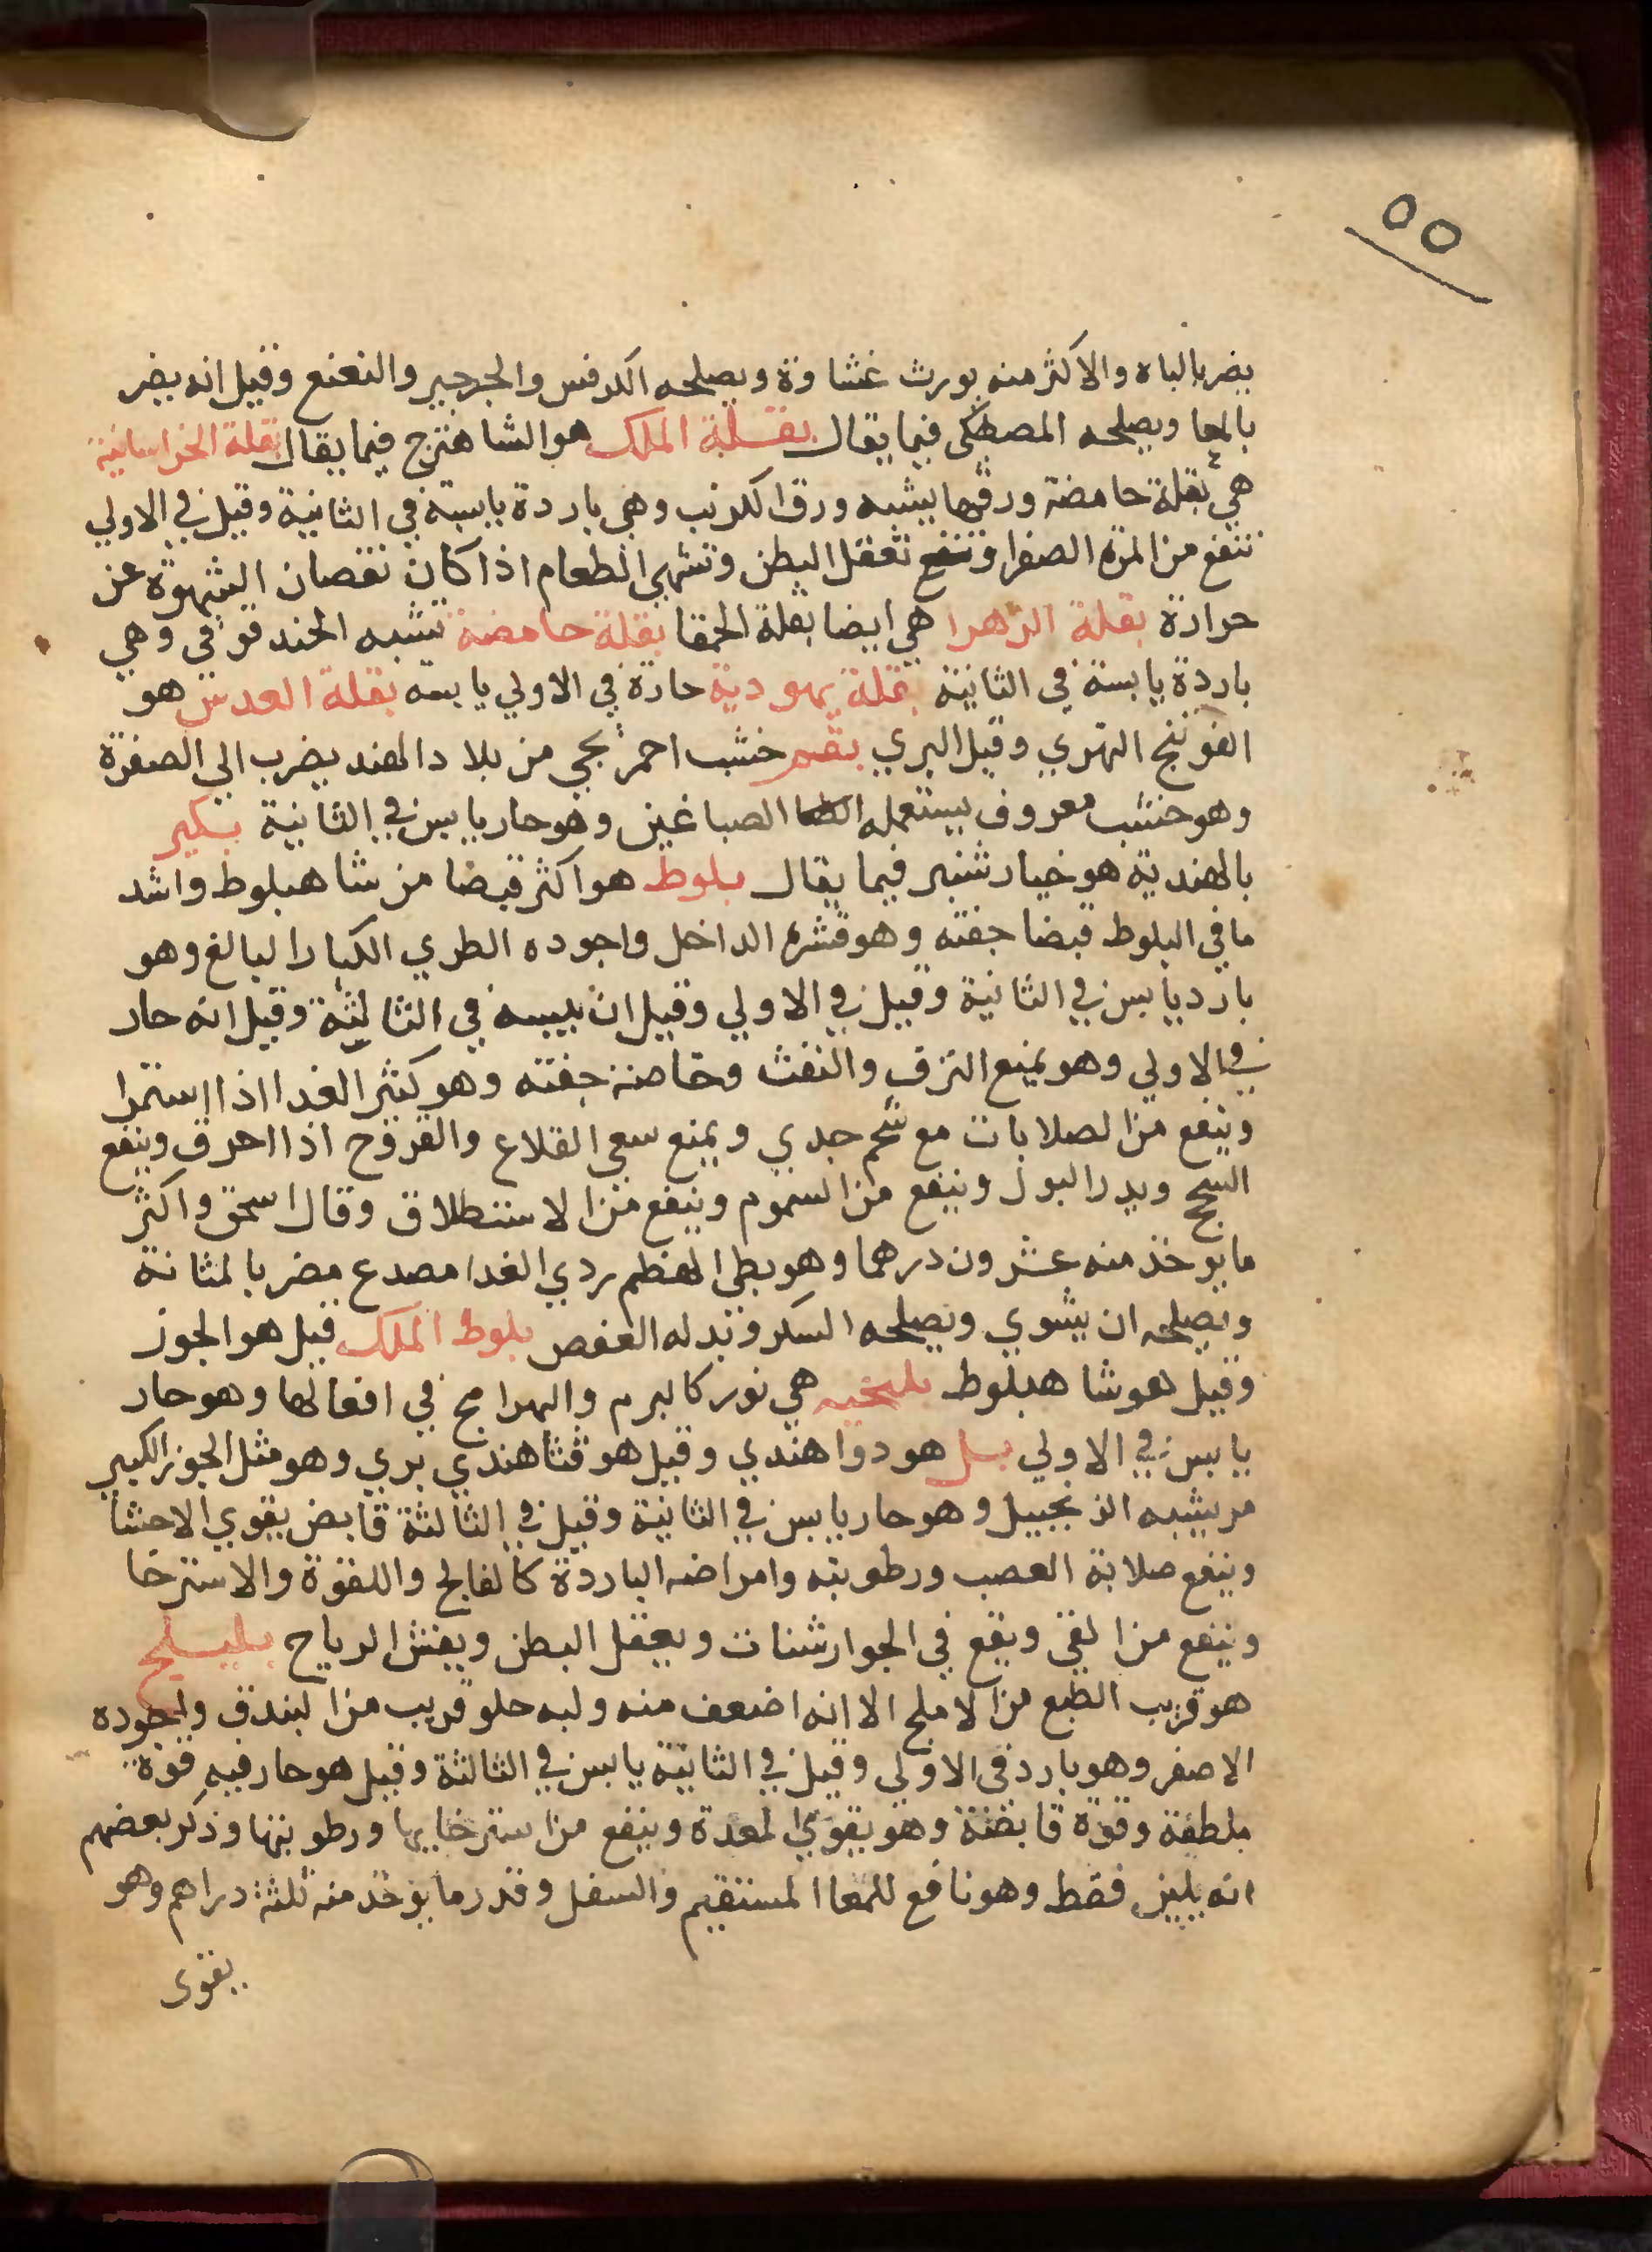 ٥٥
يضر بالباه والاكثر منه يورث غشاوة ويصلحه الكرفس والجرجير والنعنع وقيل انه يضر
بالمعا ويصلحه المصطكى فيما يقال بقلة الملك هو الشاهترج فيما يقال بقلة الخراسانية
هي بقلة حامضة ورقها يشبه ورق الكرنب وهي باردة يابسة في الثانية وقيل في الاولي
تنفع من المرة الصفرا وتنفع تعقل البطن وتشهي الطعام اذا كان نقصان الشهوة عن
حرارة بقلة الزهرا هي ايضا بقلة الحمقا بقلة حامضة تشبه الحندقوقي وهي
باردة يابسة في الثانية بقلة يهودية حارة في الاولي يابسة بقلة العدس هو
الفوتنج النهري وقيل البري بقم خشب احمر يجي من بلاد الهند يضرب الي الصفرة
وهو خشب معروف يستعمله الصباغين وهو حار يابس في الثانية بكير
بالهندية هو خيارشنبر فيما يقال بلوط هو اكثر قبضا من شاهبلوط واشد
ما في البلوط قبضا جفته وهو قشره الداخل واجوده الطري الكبار البالغ وهو
بارد يابس في الثانية وقيل في الاولي وقيل ان يبسه في الثالثة وقيل انه حار
في الاولي وهو يمنع النزف والنفث وخاصة جفته وهو كثير الغدا اذا استمرا
وينفع من الصلابات مع شحم جدي ويمنع سعي القلاع والقروح اذا احرق وينفع
السحج ويدر البول وينفع من السموم وينفع من الاستطلاق وقال اسحق واكثر
ما يوخذ منه عشرون درهما وهو بطي الهظم ردي الغدا مصدع مضر بالمثانة
ويصلحه ان يشوي ويصلحه السكر وبدله العفص بلوط الملك قيل هو الجوز
وقيل هو شاهبلوط بلنخيه هي نور كالبرم والبهرامج في افعالها وهو حار
يابس في الاولي بل هو دوا هندي وقيل هو قثا هندي بري وهو مثل الجوز الكبير
مر يشبه الزنجبيل وهو حار يابس في الثانية وقيل في الثالثة قابض يقوي الاحشا
وينفع صلابة العصب ورطوبته وامراضه الباردة كالفالج واللقوة والاسترخا
وينفع من القي ويقع في الجوارشنات ويعقل البطن ويفش الرياح بليلج
هو قريب الطبع من الاملج الا انه اضعف منه ولبه حلو قريب من البندق واجوده
الاصفر وهو بارد في الاولي وقيل في الثانية يابس في الثالثة وقيل هو حار فيه قوة
ملطفة وقوة قابضة وهو يقوي المعدة وينفع من استرخايها ورطوبتها وذكر بعضهم
انه يلين فقط وهو نافع للمعا المستقيم والسفل وقدر ما يوخذ منه ثلثة دراهم وهو
يقوى